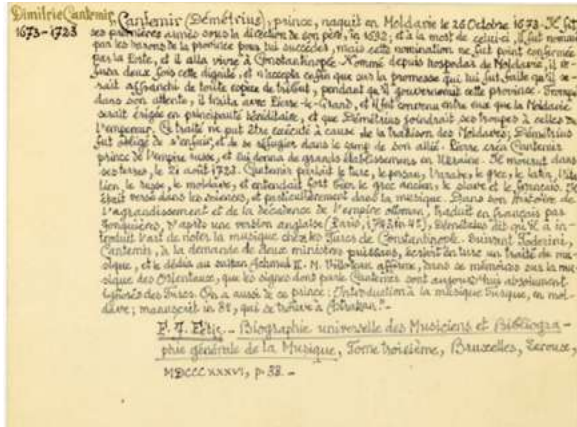 Dimitrie Cantemir
1673-1723
Cantemir (Démétrius), prince, naquit en Moldavie le 26 Octobre 1673. Il fit
ses premières armes sous la direction de son père, en 1692; et à la mort de celui-ci, il fut nommé
par les barons de la province pour lui succéder, mais cette nomination ne fut point confirmée
par la Porte, et il alla vivre à Constantinople. Nommé depuis hospodar de Moldavie, il re-
fusa deux fois cette dignité, et n'accepta enfin que sur la promesse qui lui fut faite qu'il se-
rait affranchi de toute espèce de tribut, pendant qu'il gouvernerait cette province. Trompé
dans son attente, il traita avec Pierre-le-Grand, et il fut convenu entre eux que la Moldavie
serait érigée en principauté héréditaire, et que Démétrius joindrait ses troupes à celles de
l'empereur. Ce traité ne put être exécuté à cause de la trahison des Moldaves; Démétrius
fut obligé de s'enfuir, et de se réfugier dans le camp de son allié. Pierre créa Cantemir
prince de l'empire russe, et lui donna de grands établissemens en Ukraine. Il mourut dans
ses terres, le 21 août 1723. Cantemir parlait le turc, le persan, l'arabe, le grec, le latin, l'ita-
lien, le russe, le moldave, et entendait fort bien le grec ancien, le slave et le français. Il
était versé dans les sciences, et particulièrement dans la musique. Dans son Histoire de
l'agrandissement et de la décadence de l'empire ottoman, traduit en français par
Jonquières, d'après une version anglaise (Paris, 1743 in-4°), Démétrius dit qu'il a in-
troduit l'art de noter la musique chez les Turcs de Constantinople. Suivant Toderini,
Cantemir, à la demande de deux ministres puissans, écrivit en turc un traité de mu-
sique, et le dédia au sultan Achmed II. M. Villoteau affirme, dans se mémoires sur la mu-
sique des Orientaux, que les signes dont parle Cantemir sont aujourd'hui absolument
ignorés des Turcs. On a aussi de ce prince: Introduction à la musique turque, en mol-
dave; manuscrit in 8°, qui se trouve à Astrakan."
F. J. Fétis. - Biographie universelle des Musiciens et Bibliogra-
phie générale de la Musique, Tome troisième, Bruxelles, Leroux,
MDCCCXXXVI, p. 38. -